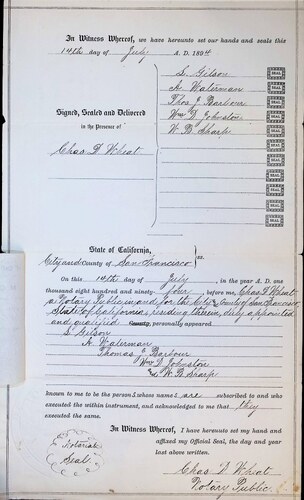 In Witness Whereof, we have hereunto set our hands and seals this
14th day of July A. D. 1894
S. Gilson SEAL
A. Waterman SEAL
Thos J. Barbour SEAL
Signed, Sealed and Delivered Wm D. Johnston SEAL
in the Presence of W. B. Sharp SEAL
Chas D Wheat SEAL
SEAL
SEAL
SEAL
SEAL
State of California,
City and County of San Francisco } ss.
On this 14th day of July, in the year A. D. one
thousand eight hundred and ninety four, before me, Chas D Wheat
a Notary Public in and for the City & County of San Francisco
State of California, residing therein, duly appointed
and qualified County, personally appeared
S. Gilson
A. Waterman
Thomas Barbour
Wm D Johnston
& W. B Sharp
known to me to be the person s whose name s are subscribed to and who
executed the within instrument, and acknowledged to me that they
executed the same.
In Witness Whereof, I have hereunto set my hand and
affixed my Official Seal, the day and year
last above written.
Notarial
Seal
Chas D Wheat
Notary Public